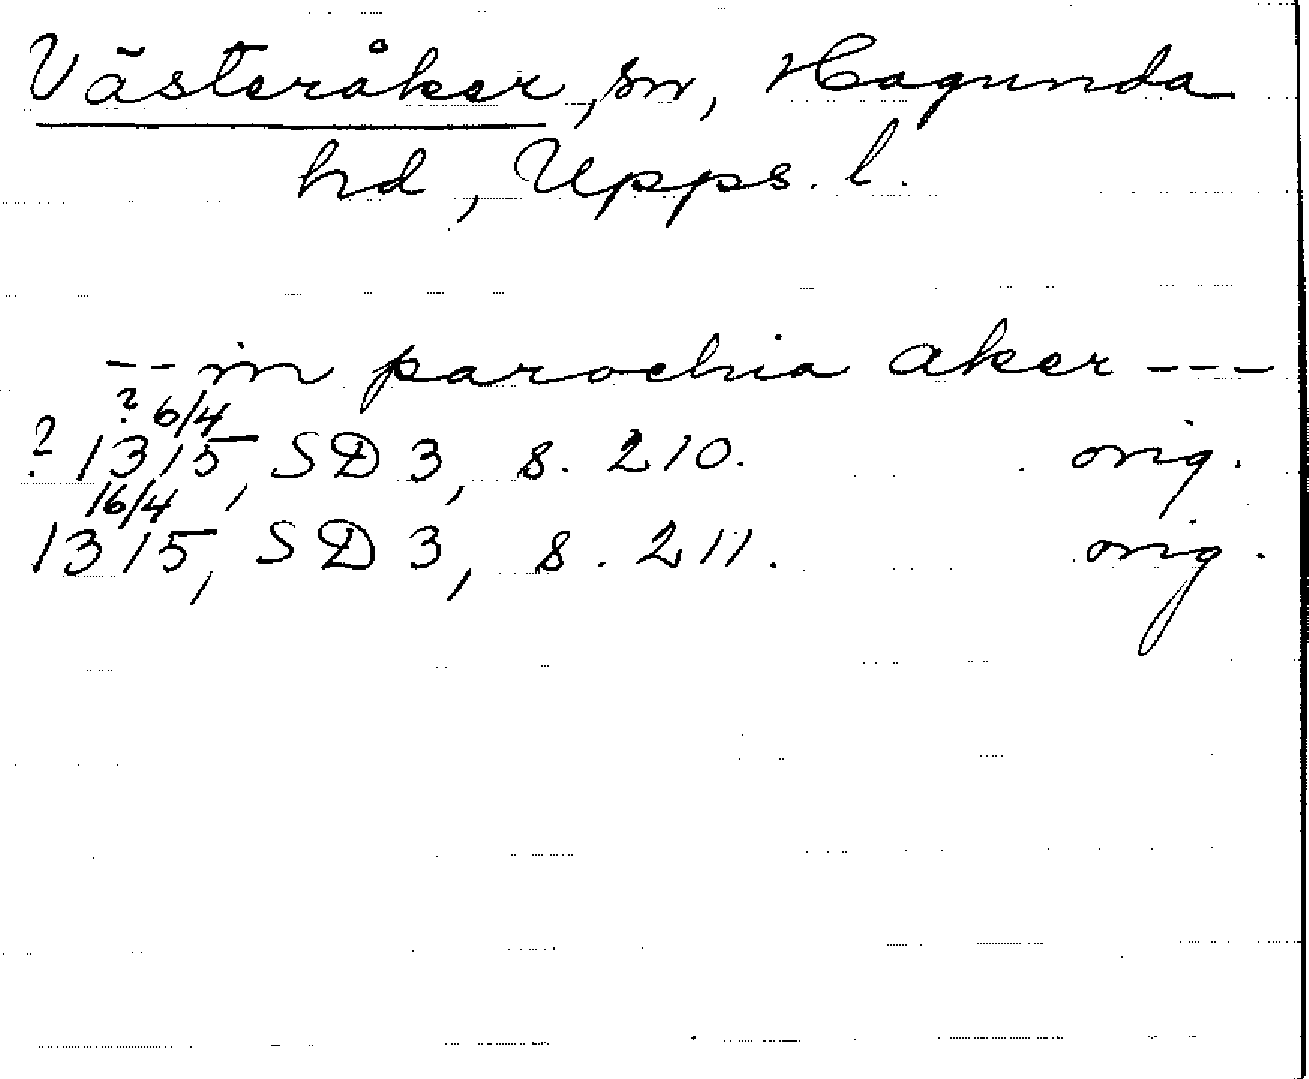 Västeråker, sn, Hagunda
hd, Upps. l.
-- in parochia aker ---
? 6/4
? 1315, SD 3, s. 210. orig.
16/4
1315, SD 3, s. 211. orig.